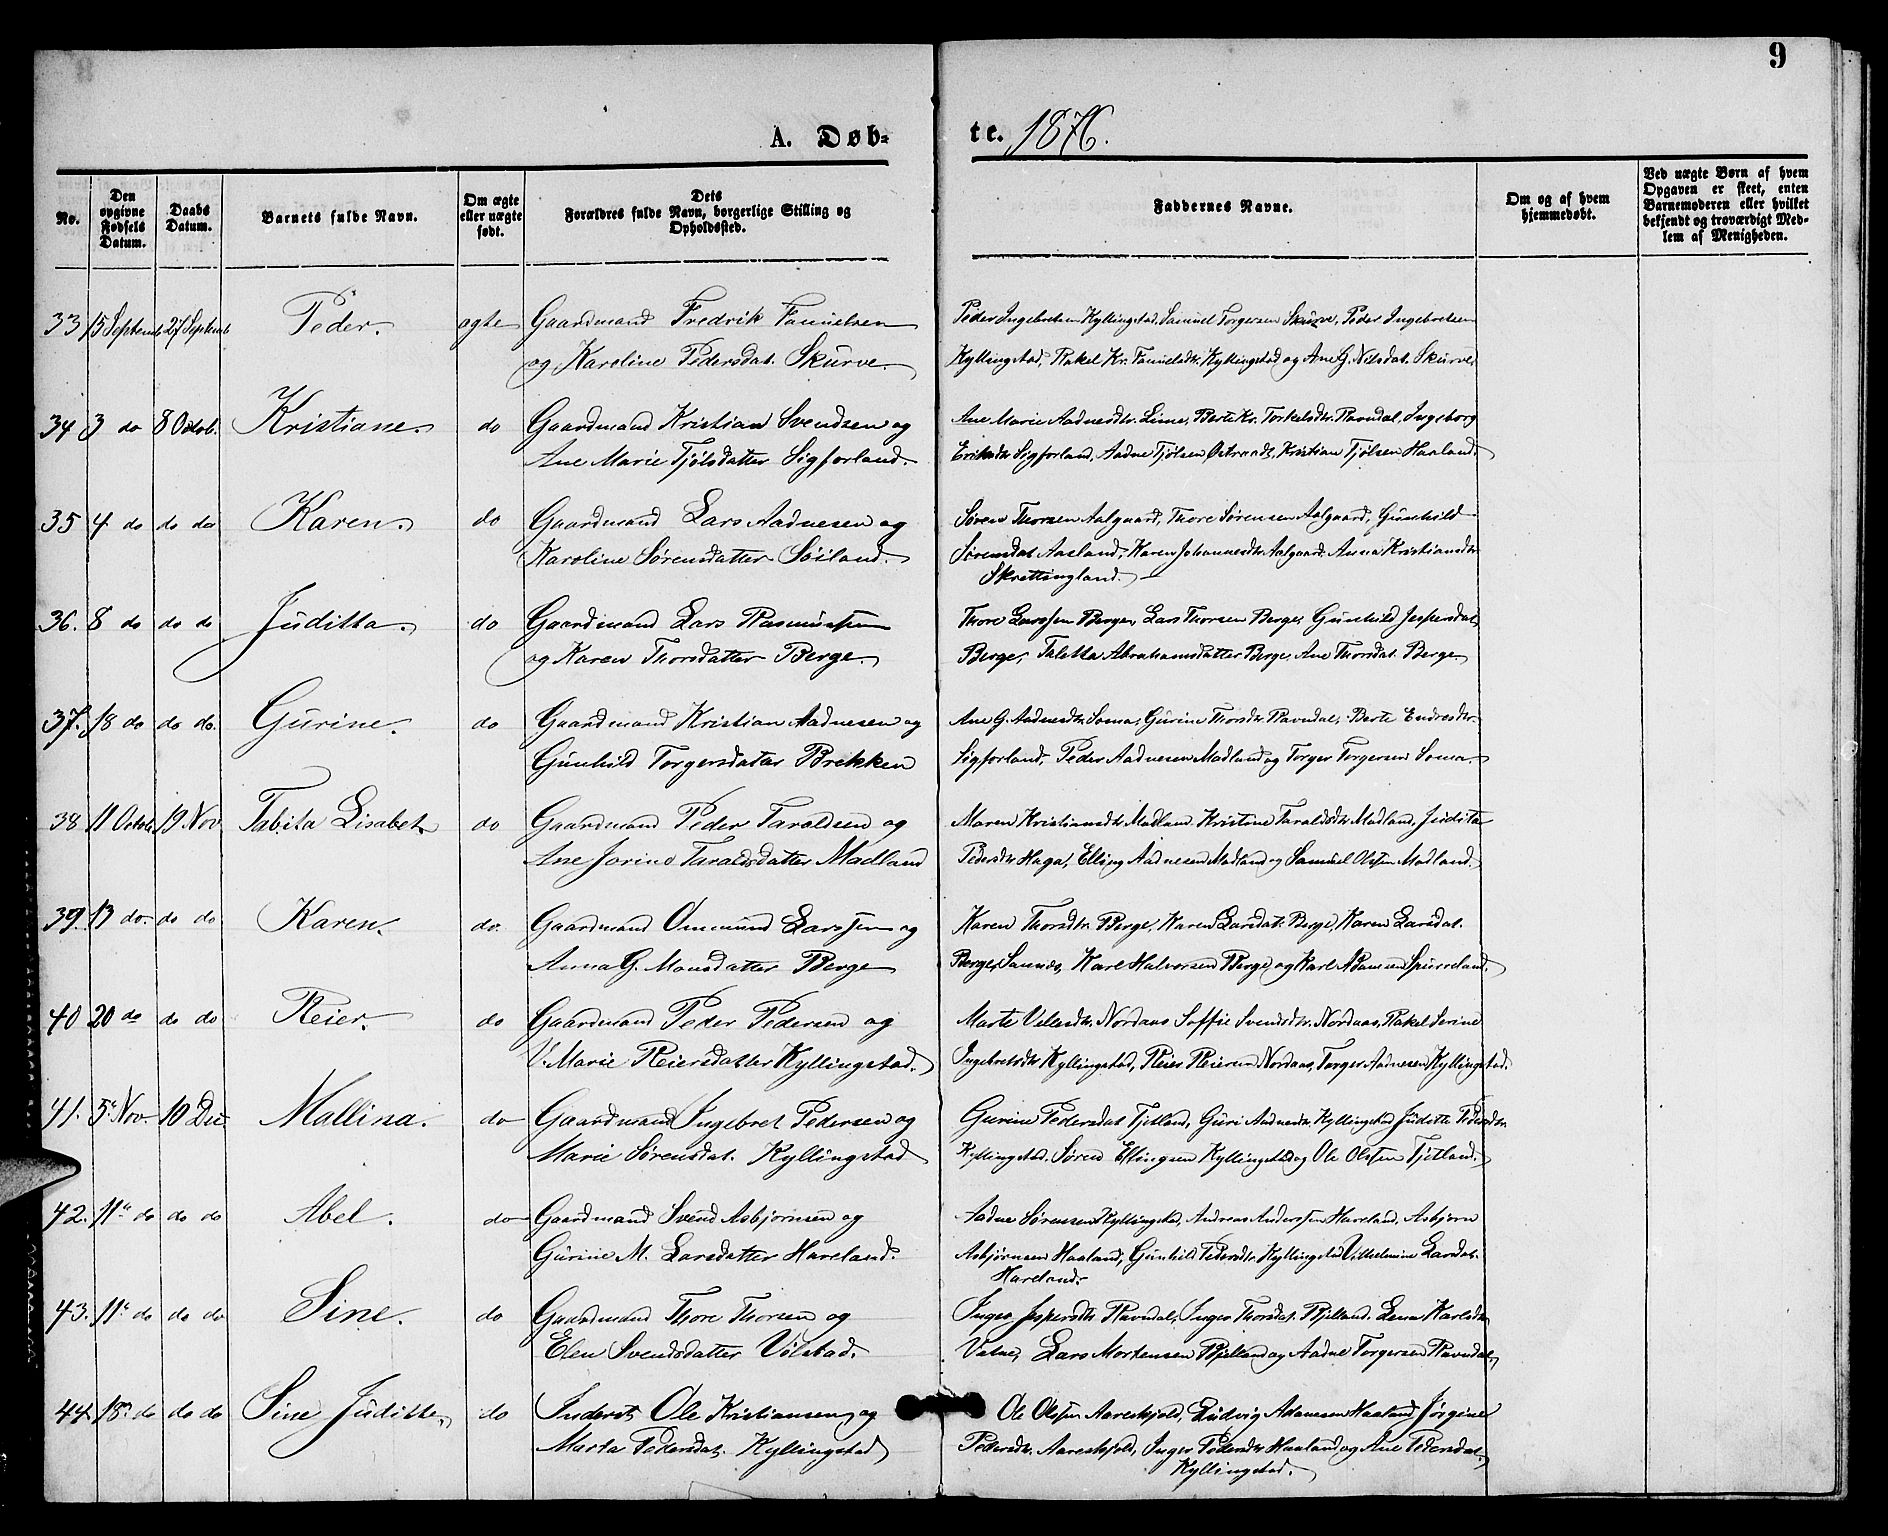 9
A. Døb- te. 1876.
No.
Den opgivne Fødsels Datum.
Daabs Datum.
Barnets fulde Navn.
Om ægte eller uægte født.
Dets Forældres fulde Navn, borgerlige Stilling og Opholdssted.
Faddernes Navne.
Om og af hvem hjemmedøbt.
Ved uægte Børn af hvem Opgaven er skeet, enten Barnemoderen eller hvilket bekjendt og troværdigt Medlem af Menigheden.
33 15 Septemb 27 Septemb Peder. ægte Gaardmand Fredrik Samuelsen Peder Ingebretsen Kyllingstad, Samuel Torgersen Skurve, Peder Ingebretsen
og Karoline Pedersdat. Skurve. Kyllingstad, Rakel Kr. Samuelsdtr. Kyllingstad og Ane G. Nilsdat. Skurve
34 3 do 8 Octob. Kristiane. do Gaardmand Kristian Svendsen og Ane Marie Aadnesdtr. Lime, Berte Kr. Torkelsdtr. Ravndal, Ingeborg
Ane Marie Tjølsdatter Sigforland. Eriksdtr Sigforland, Aadne Tjølsen Østraadt, Kristian Tjølsen Haaland.
35 4 do do do Karen. do Gaardmand Lars Aadnesen og Søren Thorsen Aalgaard, Thore Sørensen Aalgaard, Gunhild
Karoline Sørensdatter Søiland. Sørensdat Aasland, Karen Johannesdtr Aalgaard Anna Kristiansdtr.
Skrettingland.
36. 8 do do do Juditta. do Gaardmand Lars Rasmussen Thore Larssen Berge, Lars Thorsen Berge, Gunhild Jespersdat,
og Karen Thorsdatter Berge. Berge, Taletta Abrahamsdatter Berge, Ane Thorsdat. Berge
37. 18 do do do. Gurine. do Gaardmand Kristian Aadnesen og Ane G. Aadnesdtr. Soma, Gurine Thorsdtr. Ravndal, Berte Endresdtr.
Gunhild Torgersdatter Brekken Sigforland, Peder Aadnesen Madland og Torger Torgersen Soma
38 11 Octob 19 Nov Tabita Lisabet do Gaardmand Peder Taraldsen og Maren Kristiansdtr Madland Kristine Taraldsdtr. Madland, Judita
Ane Jorine Taraldsdatter Madland Pedersdtr Haga, Elling Aadnesen Madland og Samuel Olssen Madland.
39. 13 do. do do Karen. do. Gaardmand Ommund Larssen og Karen Thorsdtr. Berge, Karen Larsdat. Berge, Karen Larsdat.
Anna G. Monsdatter Berge Berge, Sannes, Karl Halvorsen Berge, og Karl Adamsen Spurreland.
40 20 do do do Reier. do Gaardmand Peder Pedersen og Marte Velesdtr. Nordaas Soffie Svendsdtr. Nordaas, Rakel Serine
V. Marie Reiersdatter Kyllingstad. Ingebretsdtr Kyllingstad, Reier Reiersen Nordaas, Torger Aadnesen Kyllingstad.
41. 5. Nov. 10 Dec Mallina. do Gaardmand Ingebret Pedersen og Gurine Pedersdat. Tjetland, Guri Aadnesdtr. Kyllingstad Juditte Pedersdtr.
Marie Sørensdat. Kyllingstad Kyllingstad. Søren Ellingsen Kyllingstad og Ole Olssen Tjetland.
42. 11. do do do Abel. do Gaardmand Svend Asbjørnsen og Aadne Sørensen Kyllingstad, Andreas Anderssen Hareland, Asbjørn
Gurine M. Larsdatter Hareland. Asbjørnsen Haaland, Gunhild Pedersdtr. Kyllingstad Vilhelmine Larsdat.
Hareland.
43. 11. do do do Sine. do Gaardmand Thore Thorsen og Inger Jespersdtr Ravndal, Inger Thorsdat. Bjelland. Lena Karlsdtr
Elen Svendsdatter Vølstad. Vatne, Lars Mortensen Bjelland og Aadne Torgersen Ravndal,
44 18. do do do Sine Juditte. do Inderst Ole Kristiansen og Ole Olssen Aareskjold, Ludvig Adnesen Haaland, Jørgine
Marta Pedersdat. Kyllingstad Pedersdtr. Aareskjold, Inger Pedersdtr Haaland og Ane Pedersdat.
Kyllingstad.